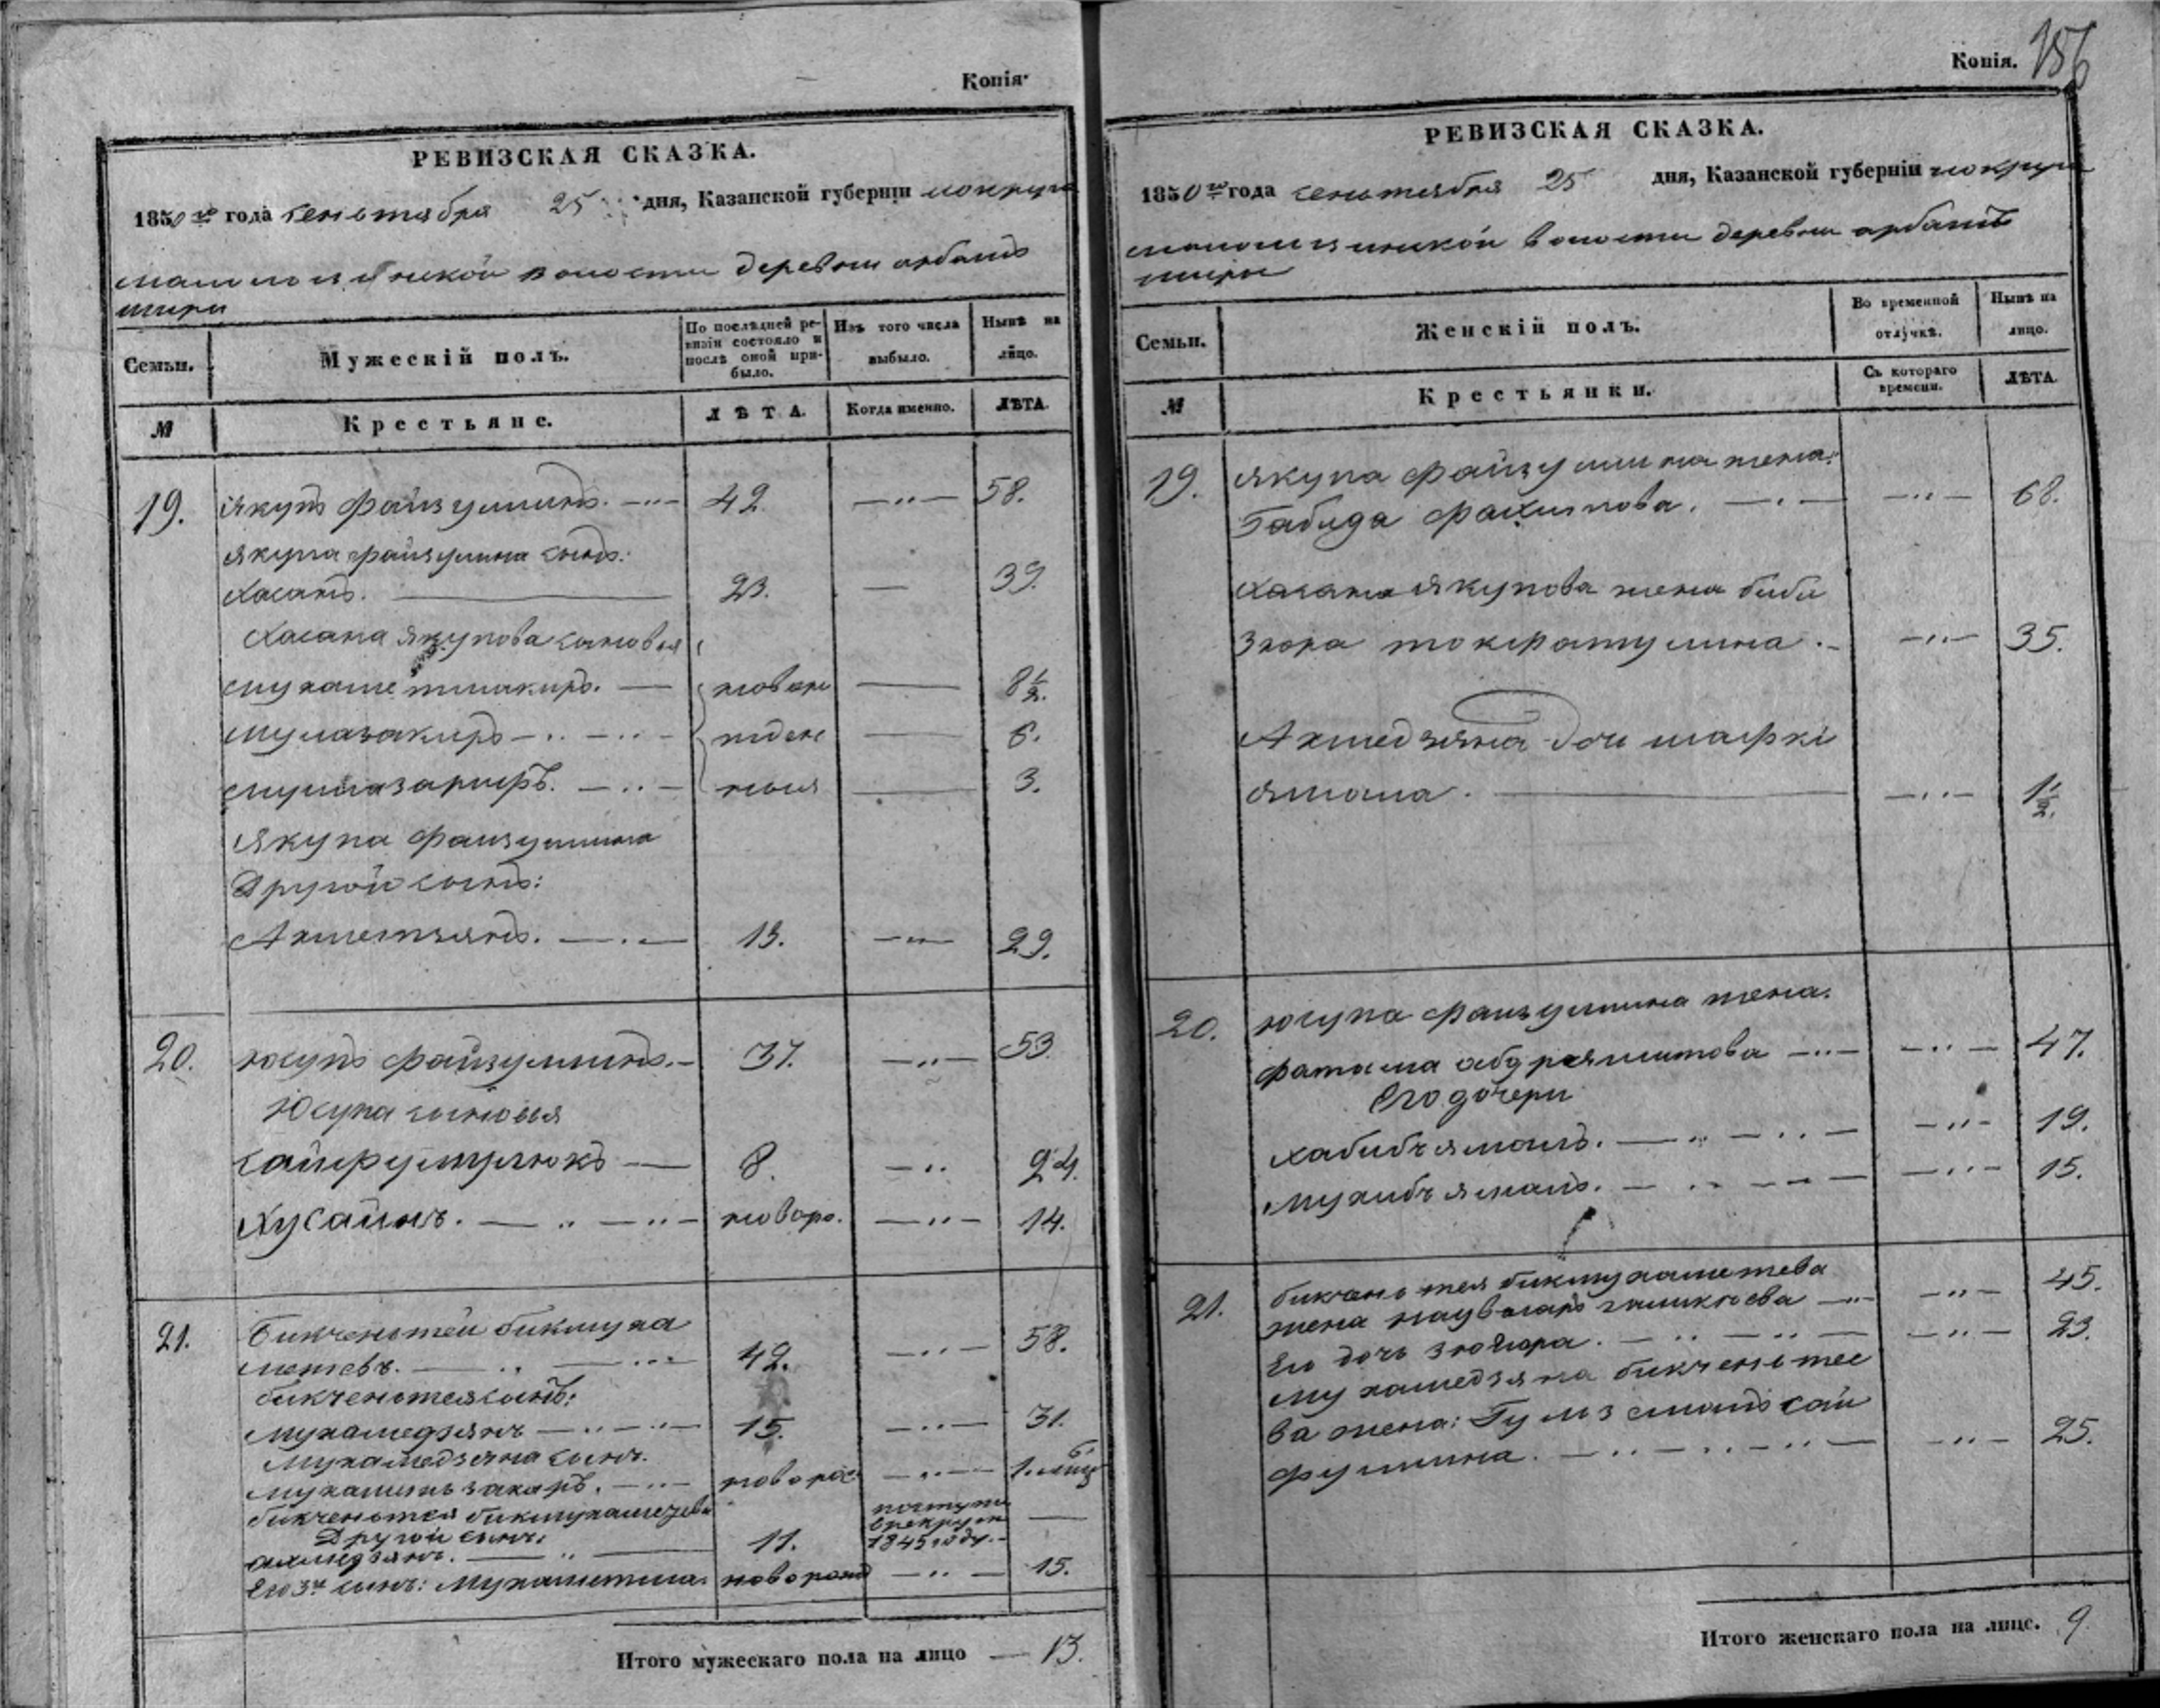 Копія.
РЕВИЗСКАЯ СКАЗКА.
1850 го года сеньтября 25 дня, Казанской губерніи
волости деревни арбашъ
шири
Семьи.
Мужескій полъ.
По послѣдней ре-
визіи состояло и
послѣ оной при-
было.
Изъ того числа
выбыло.
Нынѣ на
лицо.
№
Крестьяне.
ЛѢТА.
Когда именно.
ЛѢТА.
19. якупъ файзуллинъ. 42. 58.
якупа файзулина сынъ:
хасанъ. 23. 39.
хасана якупова сыновья
мухаметшакиръ. новоро 8 1/2.
мулазакиръ ждене 6.
мулазарифъ. ныя 3.
якупа файзуллина
Другой сынъ:
Ахметзянъ. 13. 29.
20. юсупъ файзуллинъ. 37. 53.
Юсупа сыновья
сайфулмулюкъ 8. 24.
хусаинъ. новоро. 14.
21. Бикчентей бикмуха
метевъ. 42. 58.
бикчентея сынъ:
мухамедзянъ 15. 31.
мухамедзяна сынъ.
новорос
бикчентея бикмухаметева
Другой сынъ:
ахмедзянъ. 11. 1845 году.
Его 3й сынъ: Мухаметша. новорожд 15.
Итого мужескаго пола на лицо 13.
Копія. 156
РЕВИЗСКАЯ СКАЗКА.
1850 го года сеньтября 25 дня, Казанской губерніи
волости деревни арбашъ
шири
Семьи.
Женскій полъ.
Во временной
отлучкѣ.
Нынѣ на
лицо.
№
Крестьянки.
Съ котораго
времени.
ЛѢТА.
19. якупа файзуллина жена:
Габида 68.
хасана якупова жена биби
зюра 35.
Ахмедзяна дочь шафкі
ямала. 1 1/2.
20. юсупа файзуллина жена.
фатима абдряшитова 47.
Его дочери
хабибъямалъ. 19.
мухибъямалъ. 15.
21. бикчентея бикмухаметева
жена 45.
Его дочь зюгюра. 23.
мухамедзяна бикчентее
ва жена: сай
фуллина. 25.
Итого женскаго пола на лице. 9